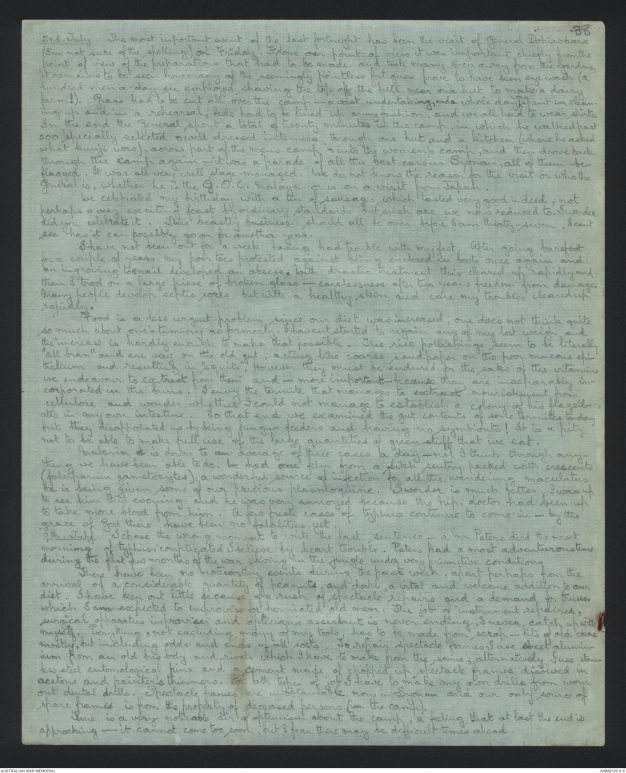 38
2nd. July. The most important event of the last fortnight has been the visit of General
(I'm not sure of the spelling) on Friday. From our point of view it was important chiefly from the
point of view of the preparations that had to be made and took many men away from the gardens,
it remains to be seen how many of the seemingly pointless fatigues prove to have been eyewash (a
hundred men a day are employed shaving the top off the hill near our hut to make a dairy
farm!). Grass had to be cut all over the camp - a vast undertaking, and a whole day spent in clean-
ing up and in a rehearsal, beds had to be lined up army fashion and we all had to wear shirts.
In the end the General spent a total of twenty minutes in the camp, in which he walked past
200 specially selected & well dressed internees, through one hut and a kitchen, (where he asked
what kunji was), across part of the mens camp & into the womens camp, and they drove back
through the camp again - it was a parade of all the best cars in Syonan, all of them be-
flagged. It was all very well stage-managed. We do not know the reason for the visit or who the
General is, whether he is the G.O.C. Malaya or is on a visit from Japan.
We celebrated my birthday with a tin of sausages which tasted very good indeed, not
perhaps a very exciting feast by ordinary standards but such are we now reduced to. I wonder
did you celebrate it. This beastly business should all be over before I am thirty-seven, I cant
see how it can possibly go on for another year.
I have not been out for a week having had trouble with my feet. After going barefoot
for a couple of years my poor toes protested against being enclosed in boots once again and
an ingrowing toenail developed an abscess. With drastic treatment this cleared up rapidly and
then I trod on a large piece of broken glass - carelessness after two years freedom from damage.
Many people develop septic sores but with a healthy skin and care my troubles cleared up
rapidly.
Food is a less urgent problem since our diet was increased, one does not think quite
so much about one's tummy as formerly. I havent started to regain any of my lost weight and
the increase is hardly enough to make that possible. The rice polishings seem to be literally
"all bran" and are very on the old gut, acting like coarse sandpaper on the poor mucous epi-
thelium and resulting in "squits". However they must be endured for the sake of the vitamins
we endeavour to extract from them and - more important - because they are inseparably in-
corporated in the buns. I envy the termite that manages to extract nourishment from
cellulose and wonder whether I could not manage to establish a colony of his flagell-
ates in my own intestine. To that end we examined the gut contents of some termites today
but they disappointed us by being fungus feeders and having no symbionts! It is a pity
not to be able to make full use of the large quantities of green stuff that we eat.
Malaria is down to an average of three cases a day - not I think through any-
thing we have been able to do. We had one film from a Sikh sentry packed with crescents
(falciparum gametocytes), a wonderful source of infection for all the wandering maculatus.
He is being given some of our precious plasmoquine. is much better. I was up
to see him this evening and he was very annoyed because the nip. doctor had been up
to take more blood from him. A few fresh cases of typhus continue to come in - by the
grace of God there have been no fatalities yet.
9th July. I chose the wrong moment to write the last sentence - a Mr Peters died the next
morning of typhus, complicated I believe by heart trouble. Peters had a most adventurous time
during the first few months of the war, living in the jungle under very primitive conditions.
There have been no noticeable events during the past week, apart perhaps from the
arrival of a considerable quantity of peanuts and dahl, a vital and welcome addition to our
diet. I have been out little because of a rush of spectacle repairs and a demand for trusses
which I am expected to improvise for herniated old men. The job of instrument repairer,
surgical apparatus improviser and opticians assistant is never ending, I never catch up with
myself. Everything, not excluding many of my tools, has to be made from scrap - bits of old cars
mostly, but including odds and ends of all sorts. To repair spectacle frames I use sheet alumin-
ium from an old bus body and rivets which I have to make from the same; alternatively I use stain-
less steel entomological pins and a cement made of chopped up spectacle frames dissolved in
acetone and painter's thinners. For both types of job I have to make my own drills from worn
out dental drills. Spectacle frames are unobtainable now in Syonan and our only source of
spare frames is from the property of deceased persons (in the camp).
There is a very noticable air of optimism about the camp, a feeling that at last the end is
approching - it cannot come too soon, but I fear there may be difficult times ahead.
AUSTRALIAN WAR MEMORIAL